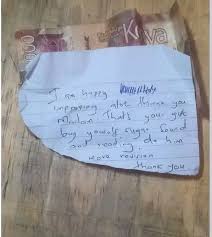 Kenya
I am happy
improving alot thank you
Madam that's your gift
buy yourself sugar
and reading. do him
more revision
thank you